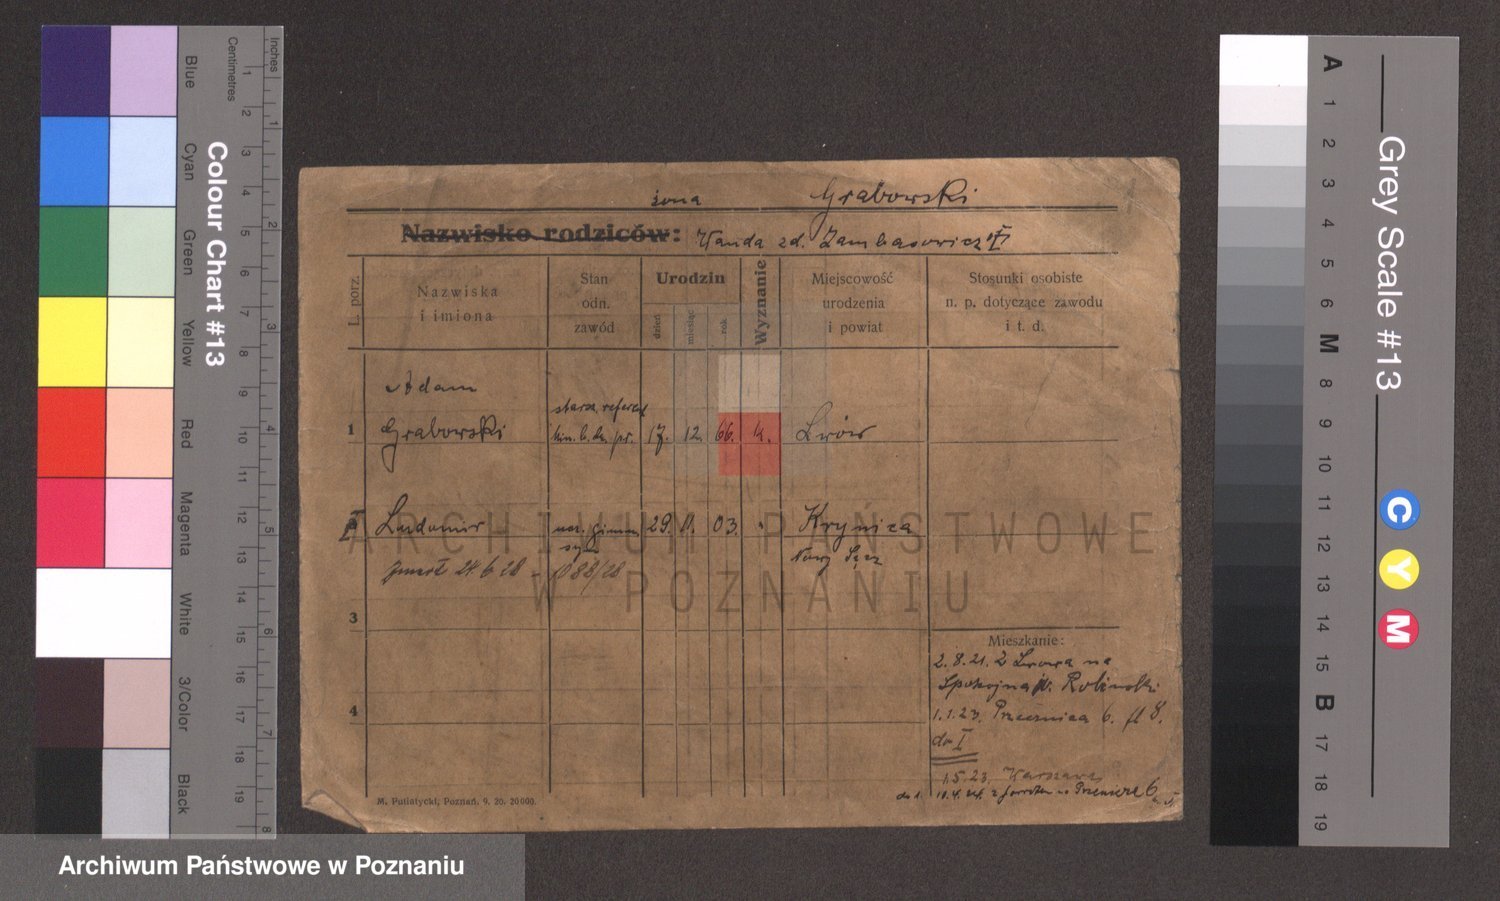 Blue
Cyan
Green
Yellow
Red
Magenta
White
3/Color
Black
Colour Chart #13
Centimetres
Inches
1 2 3 4 5 6 7 8 9 10 11 12 13 14 15 16 17 18 19
1 2 3 4 5 6 7 8
żona Grabowski
Nazwisko rodziców: Wanda zd.
L. porz.
Nazwiska i imiona
Stan odn. zawód
Urodzin
dzień miesiąc rok
Wyznanie
Miejscowość urodzenia i powiat
Stosunki osobiste n. p. dotyczące zawodu i t. d.
Adam
1 Grabowski 17. 12. 66. k. Lwów
Ludomir 29. 11. 03. Krynica
Nowy Sącz
zmarł 24 6 28 - 1088/28
3
4
Mieszkanie:
2.8.21. z Lwowa na
Spokojna
1.1.23. 6.
do I
1.5.23. Warszawa
M. Putiatycki, Poznań. 9. 20. 20000.
ARCHIWUM PAŃSTWOWE
W POZNANIU
Grey Scale #13
A 1 2 3 4 5 6 M 8 9 10 11 12 13 14 15 B 17 18 19
C
Y
M
Archiwum Państwowe w Poznaniu